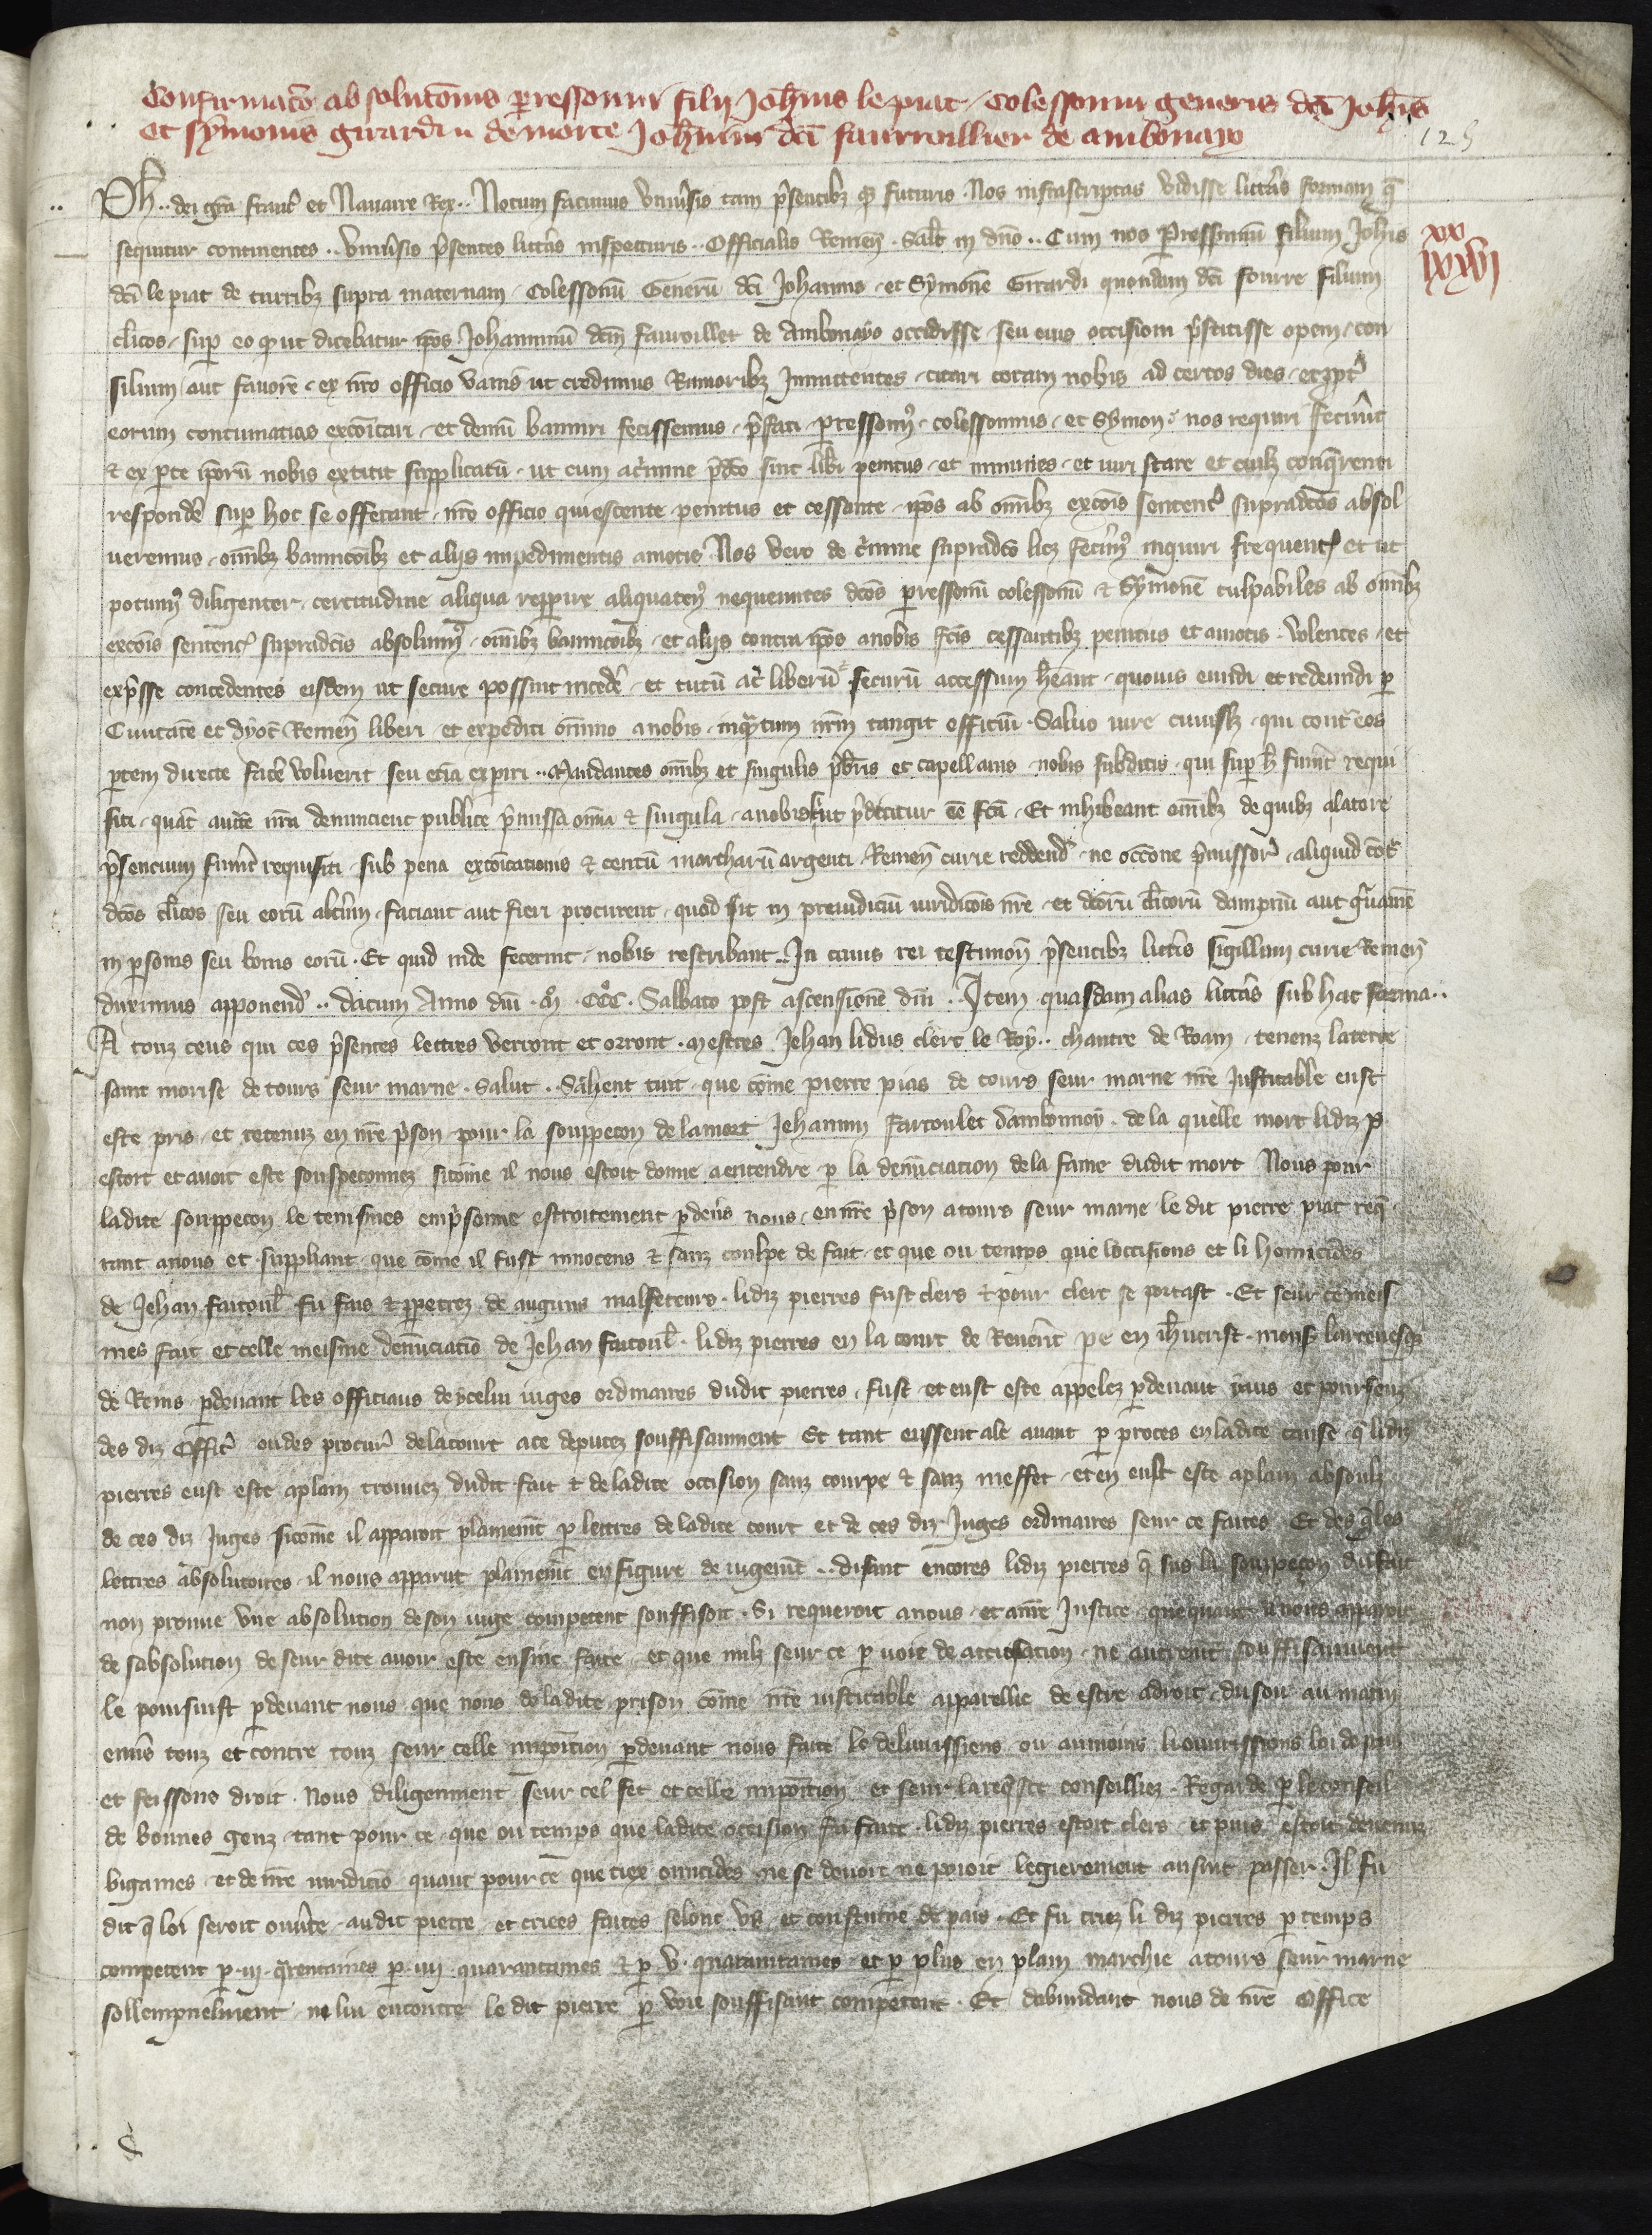 Confirmacõ absolucõnis perressonni filij Joħnis le piat, Colessonni generis dc̃i Joħis
et Symonis girardi n de morte Joħnini dc̃i fauvoillier de ambonayo
125
Pħ .. dei gr̃a franc̃ et Nauarre Rex .. Notum facimus vniũsis tam p̃sentibꝫ q̃ futuris. Nos infrascriptas vidisse litt̃as formam q̃
sequitur continentes .. Vniũsis p̃sentes litt̃as inspecturis .. Officialis Remeñ. Salt̃ in dño .. Cum nos Perressonnũ filium Joħis
xx
iiijxvj
dc̃i le piat de turribꝫ supra maternam, Colessonũ Generũ dc̃i Johannis, et Symonẽ Girardi quondam dc̃i fourre filium
cl̃icos, sup̱ eo qꝫ ut dicebatur ip̃os Johanninũ dc̃m fauvoillet de Ambonayo occidisse, seu eius occisioni p̃stitisse opem, con
silium aut fauorẽ, ex nr̃o officio vanis ut credimus Rumoribꝫ Innitentes, citari coram nobis ad certos dies, et ꝓpt̃
eorum contumatias exco̅icari, et demũ banniri fecissemus, p̃fati ꝑressonꝰ, colessonnus, et Symon, nos requiri fecerũt
& ex ꝑte ip̃orũ nobis extitit supplicatũ, ut cum a c̃mine p̃dc̃o sint lib̃i penitus, et immunes, et iuri stare et cuilꝫ conq̃renti
respondẽ sup̱ hoc se offerant, nr̃o officio quiescente penitus et cessante, ip̃os ab om̃ibꝫ exco̅is sentenc̃ supradc̃os absol
ueremus, om̃ibꝫ bannicõibꝫ et aliis impedimentis amotis. Nos vero de c̃mine supradc̃o licꝫ fec̃imꝰ inquiri frequent̃ et ut
potuimꝰ diligenter, certitudine aliqua rep̱ire aliquatenꝰ nequeuntes dc̃os perressonũ colessonũ & Symonẽ culpabiles ab om̃ibꝫ
exco̅is sentenc̃ supradc̃is absoluimꝰ, om̃ibꝫ bannicõibꝫ, et aliis contra ip̃os a nobis fc̃is cessantibꝫ penitus et amotis. Volentes, et
exp̃sse concedentes eisdem ut secure possint incedẽ, et tutũ ac̃ liberũ & securũ accessum ħeant, quouis eundi et redeundi ꝑ
Ciuitatẽ et dyoc̃ Remeñ liberi, et expediti om̃ino a nobis, inq̃ntum nr̃m tangit officiũ. Saluo iure cuiuslꝫ, qui cont̃ eos
ꝑtem directe facẽ voluerit seu ecia̅ experiri .. Mandantes om̃ibꝫ et singulis p̃bris et capellanis, nobis subditis, qui sup̱ ħ fuerint requi
siti, quat̃ auctẽ nr̃a denuncient publice p̃missa om̃ia & singula, a nobis ut p̃dicitur ee̅ fc̃a. Et inhibeant om̃ibꝫ de quibꝫ a latore
p̃sencium fuerint requisiti, sub pena exco̅icationis & centũ marcharũ argenti, Remeñ curie reddend̃, ne occõne p̃missor̃, aliquid cõt̃
dc̃os cl̃icos seu eorũ alt̃um, faciant aut fieri procurent, quod sit in preiudiciũ iuridicõis nr̃e, et dc̃orũ cl̃icorũ dampnũ aut g̃uamẽ
in ꝑsonis seu bonis eorũ. Et quid inde fecerint, nobis rescribant .. In cuius rei testimoñ p̃sentibꝫ litt̃is sigillum curie Remeñ
duximus apponend̃ .. datum Anno dñi. Mº. CCCº. Sabbato post ascensionẽ dñi .. Item quasdam alias litt̃as sub hac forma ..
A touz ceus qui ces p̃sentes lettres verront et orront. Mestres Jehan li dus clerc le Roy .. chantre de Roam, tenenz la terre
saint morise de tours seur marne. Salut .. Sachent tuit que co̅me pierre pias de tours seur marne nr̃e Justicable eust
este pris, et retenuz en nr̃e p̃son pour la souppecon de la mort Jehanin farcoulet dambonnoy, de la quelle mort li diz p̱.
estoit et auoit este souspeconnez sico̅me il nous estoit donne a entendre ꝑ la denũciation de la fame dudit mort. Nous pour
ladite souppecon le tenismes emp̃sonne estroitement ꝑdeũs nous, en nr̃e p̃son a tours seur marne le dit pierre piat req̃
rant a nous et suppliant que co̅me il fust innocens & sanz coulpe de fait, et que ou temps que loccisions et li homicides
de Jehan farcoul̃ fu fais & ꝑpetrez de auguns malfeteurs, li diz pierres fust clers & pour clerc se portast. Et seur ce meis
mes fait et celle meisme denũciatio̅ de Jehan farcoul̃, li diz pierres en la court de Reuer̃t pere en ihũcrist, mons̃ larceuesq̃
de Reins ꝑdeuant les officiaus de ycelui iuges ordinaires dudit pierres, fust et eust este appelez ꝑdeuant yaus et poursenz
des diz Offic̃ ou des procur̃ de la court a ce deputez souffisaument. Et tant eussent ale auant ꝑ proces en ladite cause, q̃ li diz
pierres eust este a plain trouuez dudit fait & de ladite occision sanz courpe & sanz meffet, et en eust este a plain absoulz
de ces diz Juges, sico̅me il apparoit plainem̃t ꝑ lettres de ladite court et de ces diz Juges ordinaires seur ce faites. Et des q̃les
lettres absolutoires il nous apparut plainem̃t en figure de iugem̃t .. disant encores li diz pierres q̃ sus la souppecon du fait
non prouue vne absolution de son iuge competent souffisoit. Si requeroit a nous, et a nr̃e Justice, que quant il nous apparoit
de sabsolution de seur dite auoir este ensint faite, et que nulz seur ce ꝑ voie de accusation, ne autrem̃t souffisaument
le poursuist ꝑdeuant nous, que nous de ladite prison co̅me nr̃e iusticable apparellie de estre a droit, du soir au matin
enũs touz et contre touz seur celle impoition ꝑdeuant nous faite le deliurissiens ou au moins li ouurissions loi de pais
et feissons droit. Nous diligemment seur cel fet et celle impoition, et seur la req̃ste conseilliez. Regarde ꝑ le conseil
de bonnes genz, tant pour ce, que ou temps que ladite occision fu faite, li diz pierres estoit clers, et puis estoit deuenuz
bigames et de nr̃e iuridicio̅, quant pour ce que tiex omicides ne se deuoit ne pooit legierement ausint passer. Il fu
dit q̃ loi seroit ouũte, audit pierre, et criees faites selonc vs, et coustume de pais. Et fu criez li diz pierres ꝑ temps
competent ꝑ. iij. q̃rentaines ꝑ. iiij. quarantaines & ꝑ. v. quarantaines, et ꝑ plus en plain marchie a tours seur marne
sollempnelment, ne lui encontre le dit pierre ꝑ voie souffisant competent. Et dabundant nous de nr̃e Office